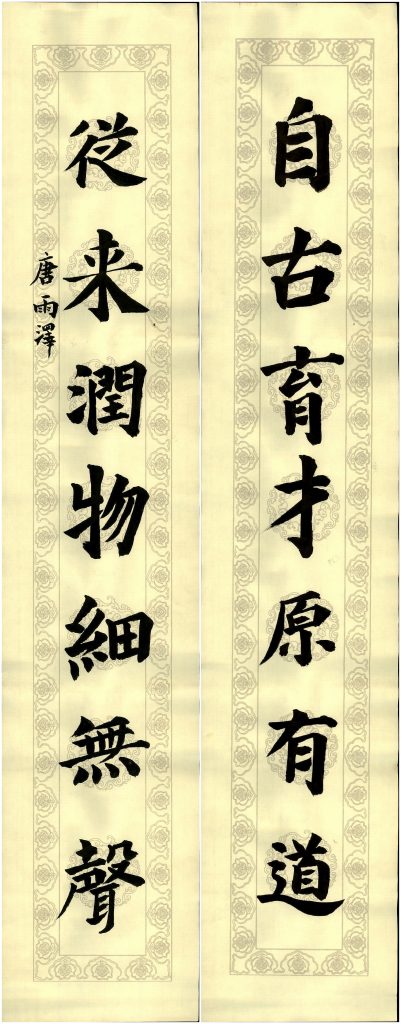 自古育才原有道
從来潤物細無聲
唐雨澤